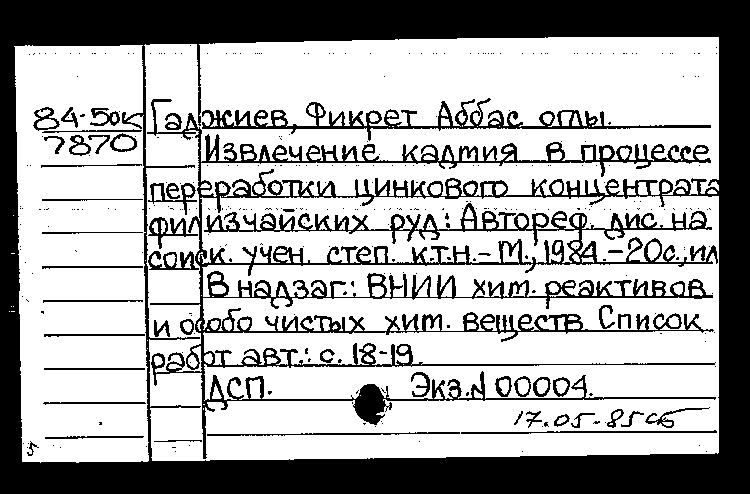 84-5ок Гаджиев, Фикрет Аббас оглы.
7870 Извлечение кадмия в процессе
переработки цинкового концентрата
филизчайских руд: Автореф. дис. на
соиск. учен. степ. к.т.н.-М., 1984.-20с., ил
В надзаг.: ВНИИ хим. реактивов
и особо чистых хим. веществ. Список
работ авт.: с. 18-19.
ДСП. Экз.N 00004.
17.05-85сб
5